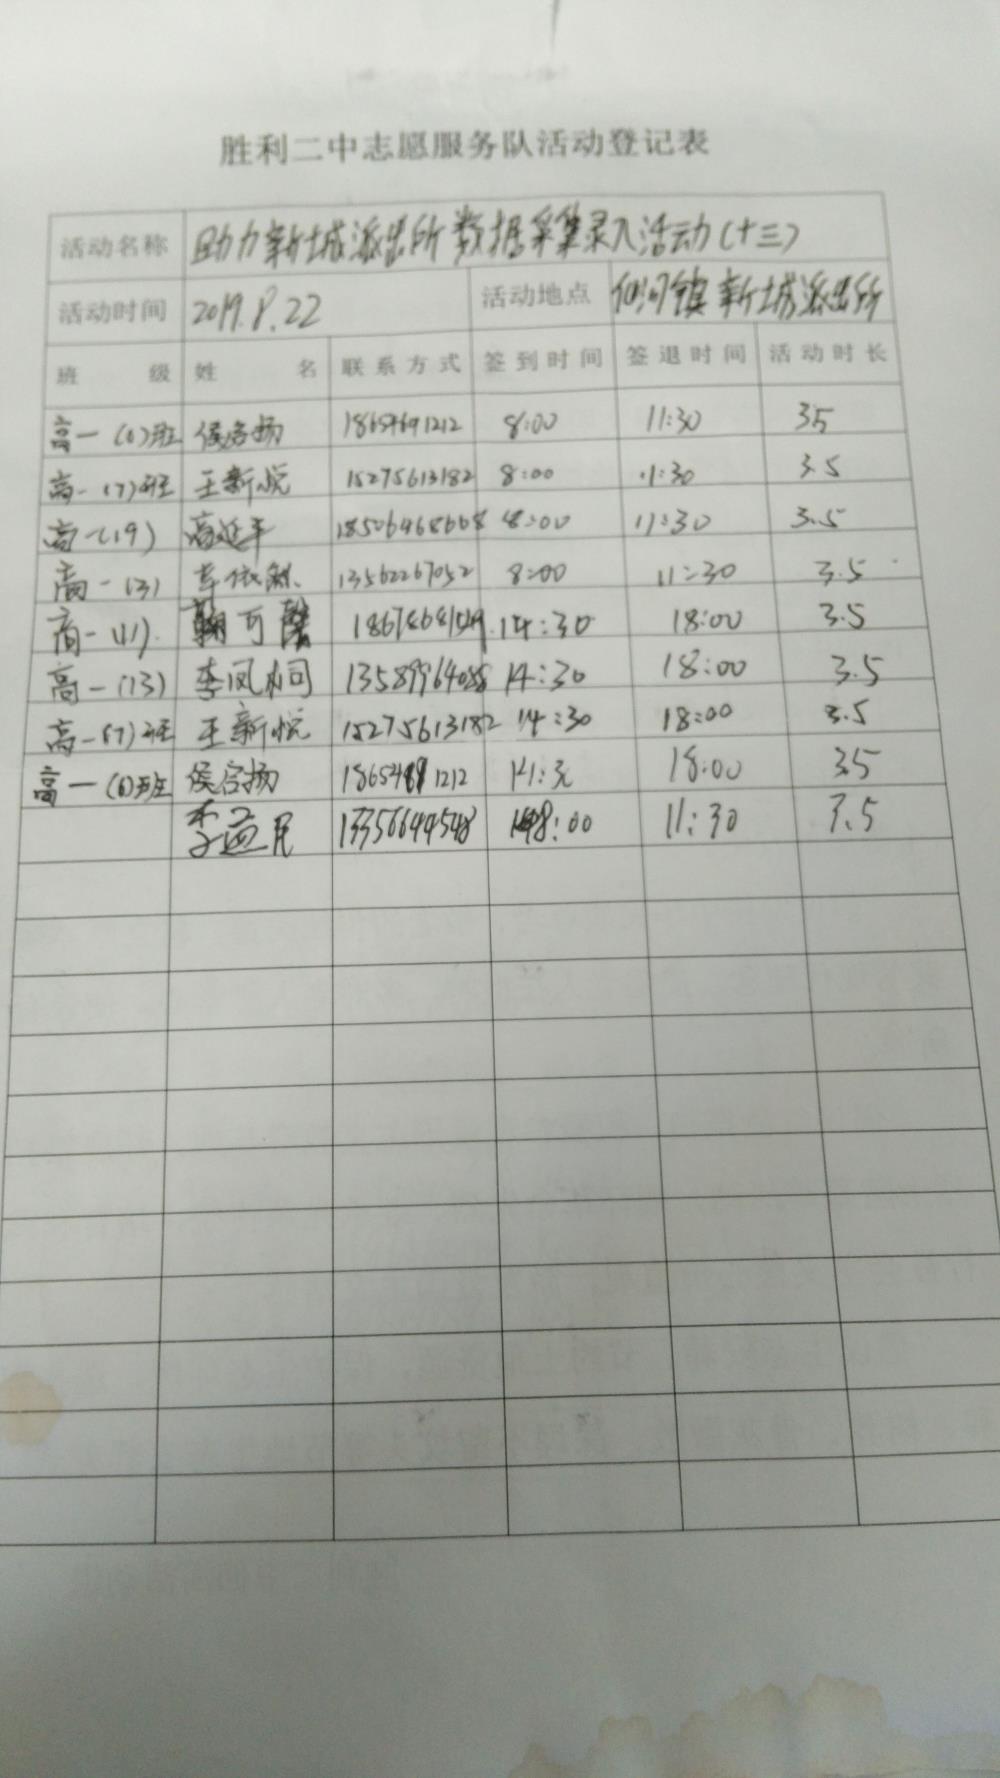 胜利二中志愿服务队活动登记表
活动名称 助力新城派出所数据采集录入活动(十三)
活动时间 2019.8.22 活动地点 仙河镇新城派出所
班级 姓名 联系方式 签到时间 签退时间 活动时长
高一(6)班 侯启扬 18654691212 8:00 11:30 3.5
高一(7)班 王新悦 15275613182 8:00 11:30 3.5
高一(19) 高延平 18506468668 8:00 11:30 3.5
高一(3) 车依 13562267052 8:00 11:30 3.5
高一(11). 可馨 14:30 18:00 3.5
高一(13) 李凤桐 13589964088 14:30 18:00 3.5
高一(7)班 王新悦 15275613182 14:30 18:00 3.5
高一(6)班 侯启扬 18654691212 14:30 18:00 3.5
李益民 13356644548 8:00 11:30 3.5